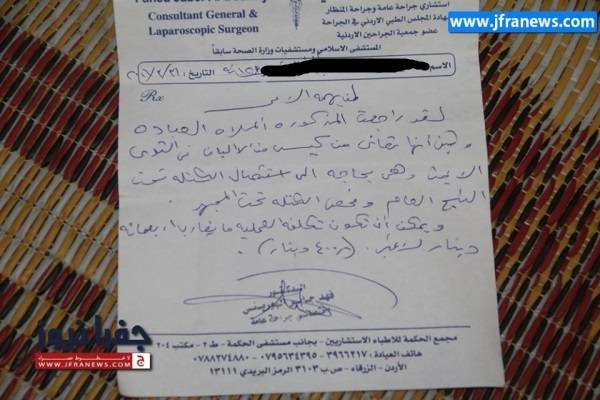 www.jfranews.com
Consultant General &
Laparoscopic Surgeon
استشاري جراحة عامة وجراحة المنظار
شهادة المجلس الطبي الأردني في الجراحة
عضو جمعية الجراحين الاردنية
المستشفى الاسلامي ومستشفيات وزارة الصحة سابقاً
الاسم
التاريخ:
Rx
لمن يهمه الأمر
لقد راجعت المذكوره أعلاه العياده
وتبين أنها تعاني من كيس من الألبان في الثدي
الأيمن وهي بحاجه الى استئصال الكتله تحت
البنج العام وفحص الكتله تحت المجهر
ويمكن أن تكون تكلفة العملية ما يقارب أربعمائه
دينار لا غير. (٤٠٠ دينار).
الدكتور
جراحة عامة
مجمع الحكمة للأطباء الاستشاريين - بجانب مستشفى الحكمة - ط٢ - مكتب ٢٠٤
هاتف العيادة: ٣٩٦٦٢١٧ - ٠٧٩٥٦٣٤٣٩٥ - ٠٧٨٨٢٧٤٨٨٠
الأردن - الزرقاء - ص.ب ٣١٠٣ الرمز البريدي ١٣١١١
جفرا نيوز
WWW.JFRANEWS.COM